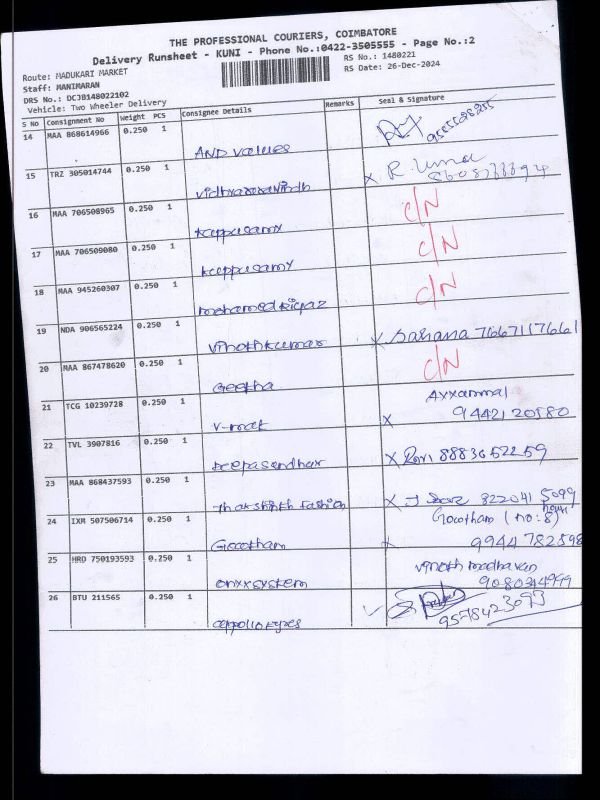 THE PROFESSIONAL COURIERS, COIMBATORE
Delivery Runsheet - KUNI - Phone No.:0422-3505555 - Page No.:2
Route: MADUKARI MARKET
RS No.: 1480221
Staff: MANIMARAN
RS Date: 26-Dec-2024
DRS No.: DCJB148022102
Vehicle: Two Wheeler Delivery
S No Consignment No Weight PCS Consignee Details Remarks Seal & Signature
14 MAA 868614966 0.250 1 AND Values
15 TRZ 305014744 0.250 1 Vidhyaaravindh
16 MAA 706508965 0.250 1 Kuppusamy C/N
17 MAA 706509080 0.250 1 Kuppusamy C/N
18 MAA 945260307 0.250 1 mohamed Riyaz C/N
19 NDA 906565224 0.250 1 Vinothkumar x Sahana 7667117661
20 MAA 867478620 0.250 1 Geetha C/N
21 TCG 10239728 0.250 1 V-mat Ayyammal
x 9442120580
22 TVL 3907816 0.250 1 Deepasendhar x Ravi 8883652259
23 MAA 868437593 0.250 1 Thakshith fashion x 822041 5099
24 IXM 507506714 0.250 1 Gowtham Gowtham (no:8)
x 9944782598
25 HRD 750193593 0.250 1 onyxsystem Vinoth madhavan
9080344999
26 BTU 211565 0.250 1 appollotyres
9578423093